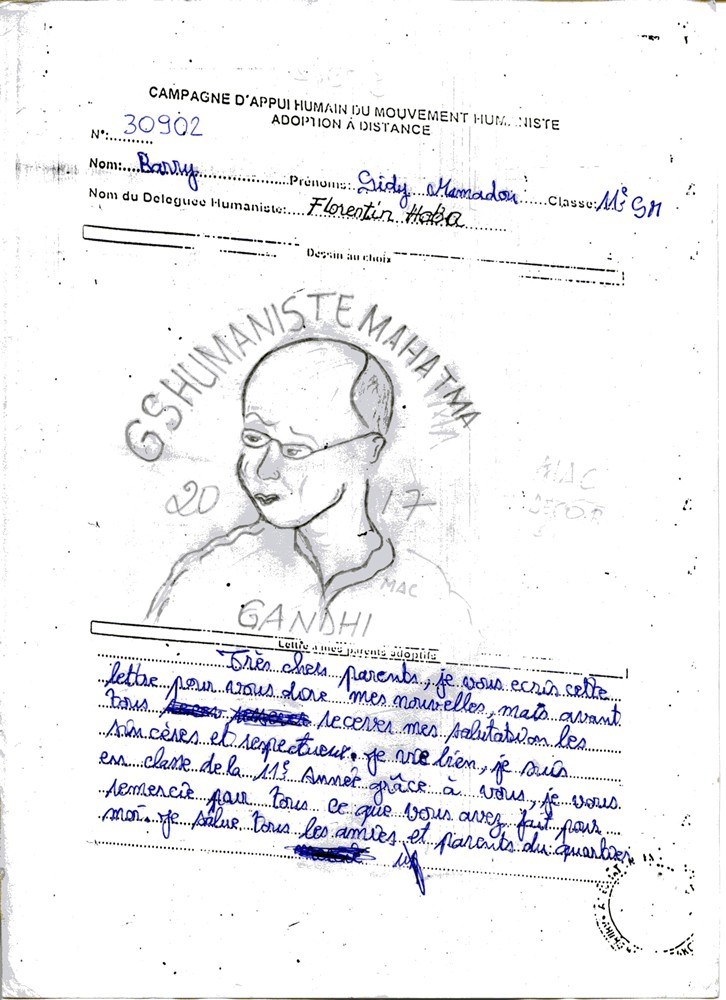 CAMPAGNE D'APPUI HUMAIN DU MOUVEMENT HUM NISTE
ADOPTION A DISTANCE
N°: 30902
Nom: Barry Prénoms: Sidy Mamadou Classe: 11e SM
Nom du Deleguée Humaniste: Florentin Haba
Dessin au choix
GS HUMANISTE MAHATMA
20 17
MAC
DECOR
MAC
GANDHI
Lettre a mes parents adoptifs
Très chers parents, je vous ecris cette
lettre pour vous dore mes nouvelles, mais avant
tous recever mes salutation les
sincères et respectueux. je vie bien, je suis
en classe de la 11e Année grâce à vous, je vous
remercie pour tous ce que vous avez fait pour
moi. je salue tous les amies et parents du quartier